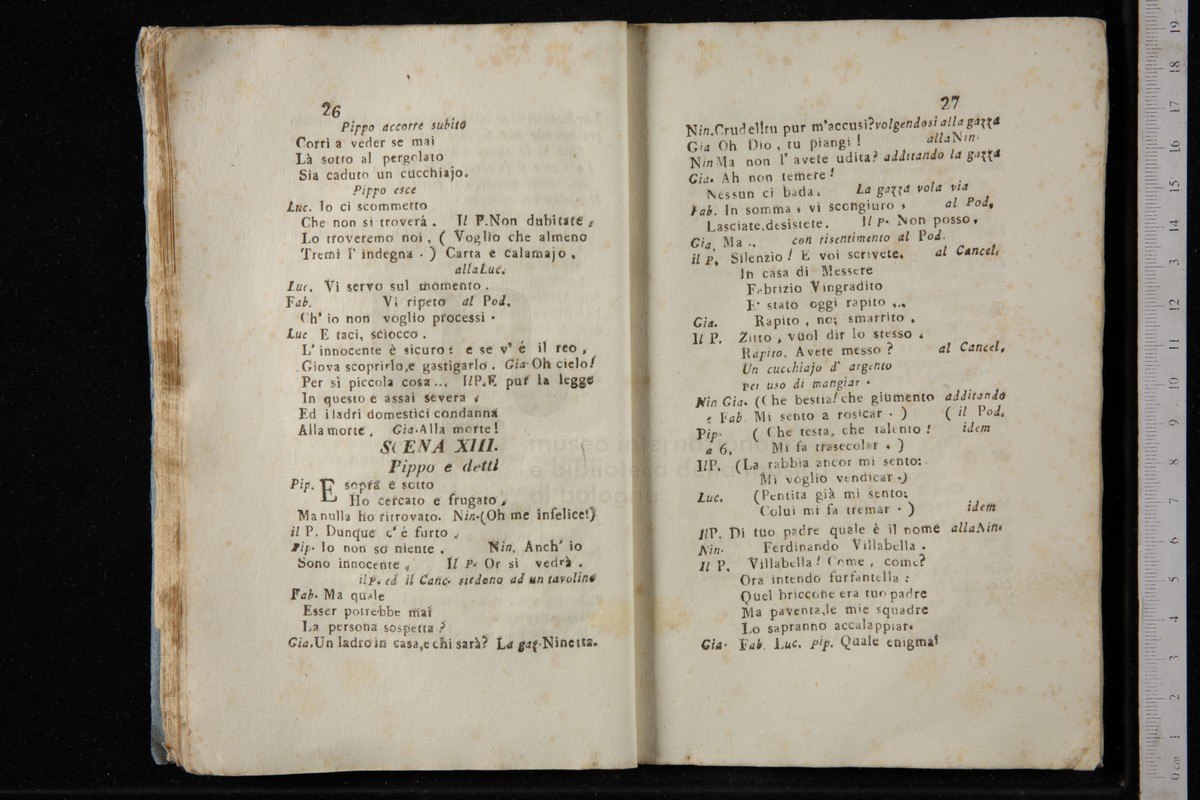 26
Pippo accorre subito
Corri a veder se mai
Là sotto al pergolato
Sia caduto un cucchiajo.
Pippo esce
Luc. Io ci scommetto
Che non si troverá . Il P.Non dubitate ,
Lo troveremo noi , ( Voglio che almeno
Tremi l' indegna . ) Carta e calamajo .
alla Luc.
Luc. Vi servo sul momento .
Fab. Vi ripeto al Pod.
Ch' io non voglio processi .
Luc E taci, sciocco .
L' innocente è sicuro : e se v' é il reo ,
Giova scoprirlo,e gastigarlo . Gia. Oh cielo!
Per sì piccola cosa ... Il P.E pur la legge
In questo e assai severa .
Ed i ladri domestici condanna
Alla morte . Gia.Alla morte!
SCENA XIII.
Pippo e detti
Pip. E sopra e sotto
Ho cercato e frugato ,
Ma nulla ho ritrovato. Nin.(Oh me infelice!)
il P. Dunque c' é furto .
Pip. Io non so niente . Nin. Anch' io
Sono innocente , Il P. Or si vedrà .
il P. ed il Canc. siedono ad un tavolino
Fab. Ma quale
Esser potrebbe mai
La persona sospetta ?
Gia.Un ladro in casa,e chi sarà? La gaz.Ninetta.
27
Nin.Crudel!tu pur m'accusi?volgendosi alla gazza
Gia Oh Dio , tu piangi ! alla Nin.
Nin Ma non l' avete udita? additando la gazza
Gia. Ah non temere!
Nessun ci bada. La gazza vola via
Fab. In somma , vi scongiuro , al Pod.
Lasciate,desistete. Il P. Non posso.
Gia. Ma .. con risentimento al Pod.
il P. Silenzio! E voi scrivete. al Cancel.
In casa di Messere
Fabrizio Vingradito
E' stato oggi rapito ...
Gia. Rapito , no; smarrito .
Il P. Zitto , vuol dir lo stesso .
Rapito. Avete messo ? al Cancel.
Un cucchiajo d' argento
per uso di mangiar .
Nin Gia. (Che bestia! che giumento additando
e Fab. Mi sento a rosicar . ) ( il Pod.
Pip. ( Che testa, che talento ! idem
a 6. Mi fa trasecolar . )
Il P. (La rabbia ancor mi sento:
Mi voglio vendicar .)
Luc. (Pentita già mi sento;
Colui mi fa tremar . ) idem
Il P. Di tuo padre quale è il nome alla Nin.
Nin. Ferdinando Villabella .
Il P. Villabella! Come , come?
Ora intendo furfantella :
Quel briccone era tuo padre
Ma paventa,le mie squadre
Lo sapranno accalappiar.
Gia. Fab. Luc. Pip. Quale enigma!
museo internazionale
e biblioteca della musica
di bologna